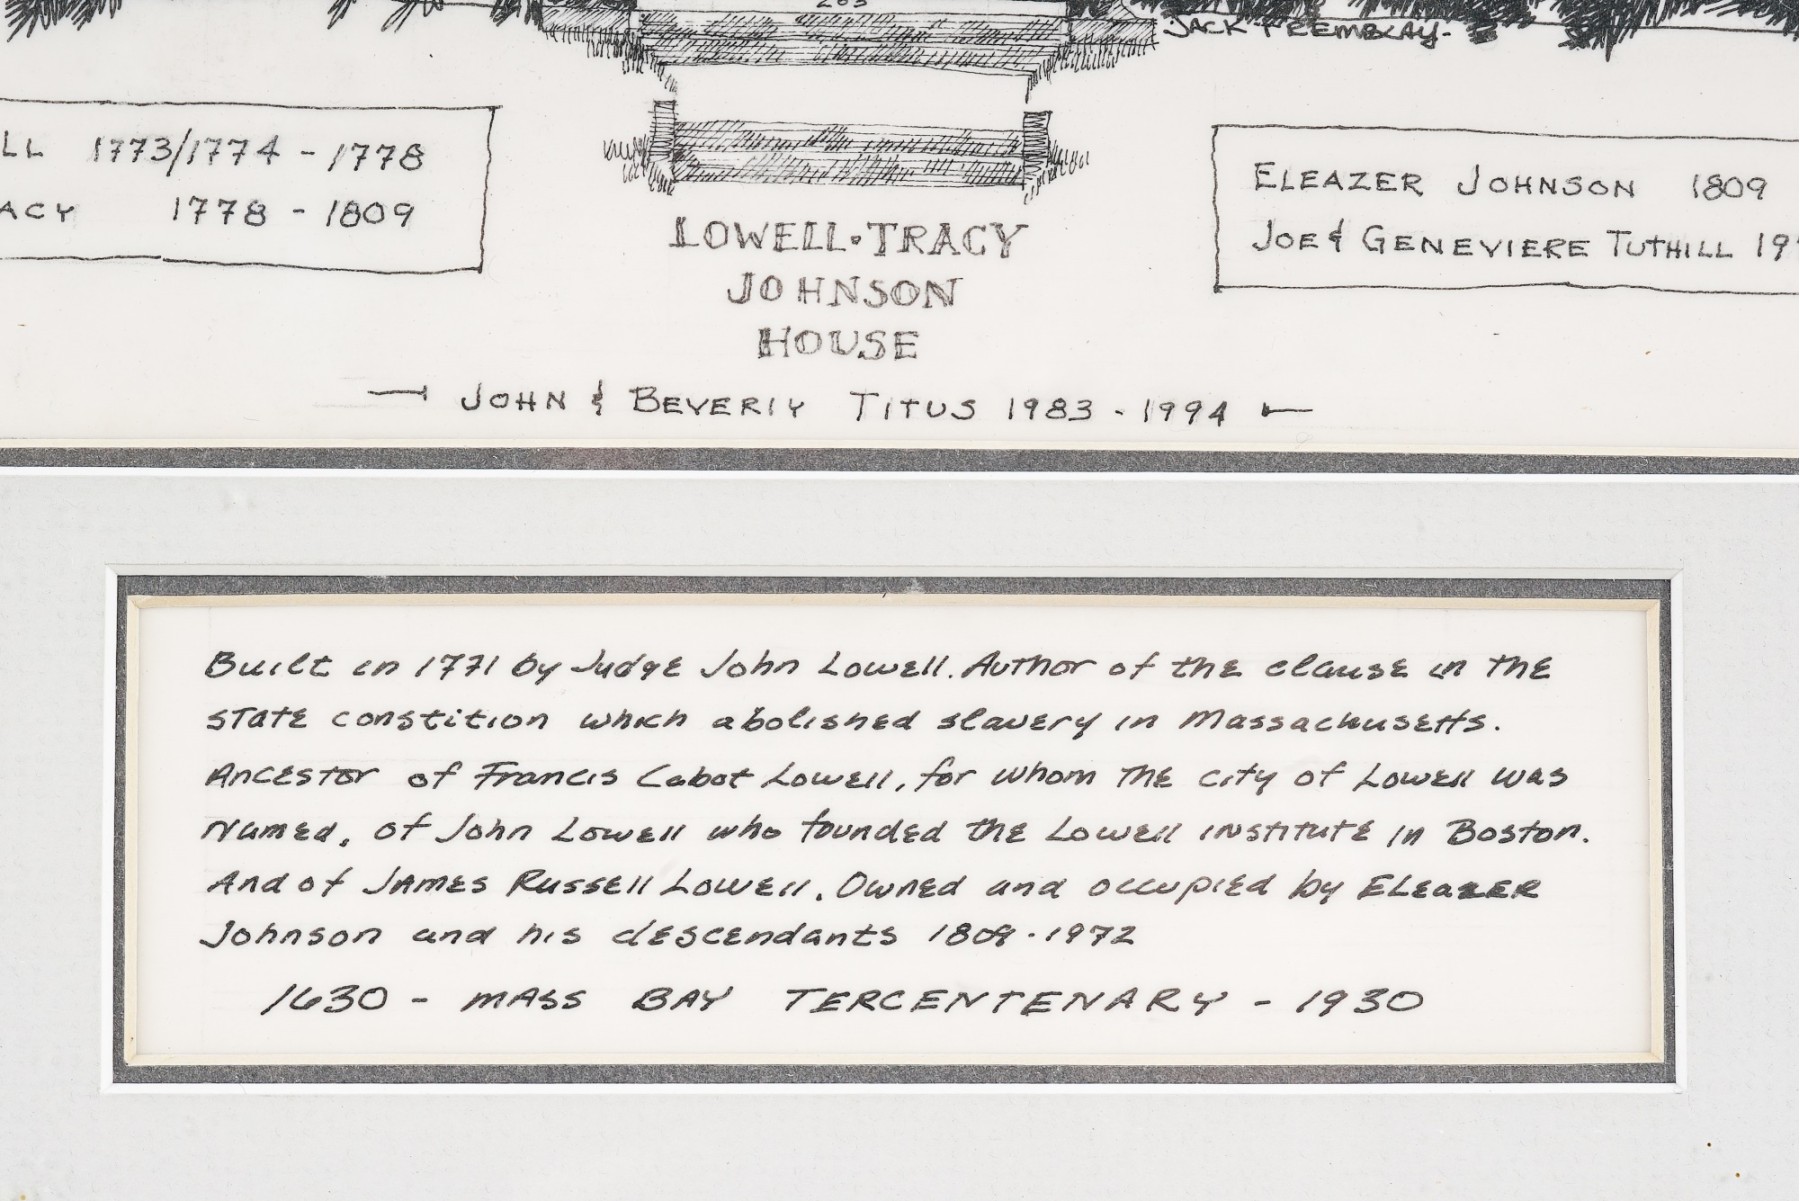 203
JACK TREMBLAY-
LL 1773/1774 - 1778
ACY 1778 - 1809
ELEAZER JOHNSON 1809
JOE & GENEVIERE TUTHILL 19
LOWELL·TRACY
JOHNSON
HOUSE
JOHN & BEVERLY TITUS 1983 - 1994
Built in 1771 by Judge John Lowell. Author of the clause in the
state constition which abolished slavery in Massachusetts.
Ancestor of Francis Cabot Lowell, for whom the city of Lowell was
Named, of John Lowell who founded the Lowell institute in Boston.
And of James Russell Lowell. Owned and occupied by Eleazer
Johnson and his descendants 1809-1972
1630 - MASS BAY TERCENTENARY - 1930